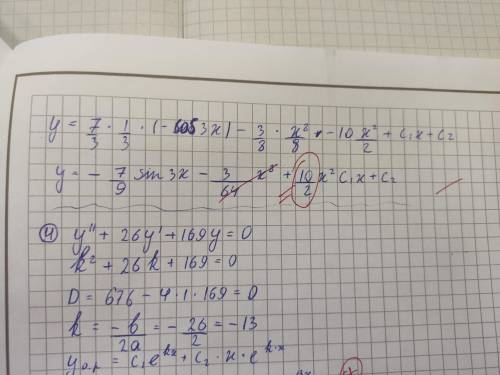 y = 7/3 · 1/3 · (-cos3x) - 3/8 · x⁸/8 · -10 x²/2 + C₁x + C₂
y = - 7/9 sin 3x - 3/64 x⁸ + 10/2 x² C₁x + C₂
④ y'' + 26y' + 169y = 0
k² + 26k + 169 = 0
D = 676 - 4·1·169 = 0
k = -b/2a = - 26/2 = -13
yо.р = C₁e^kx + C₂ · x · e^k·x